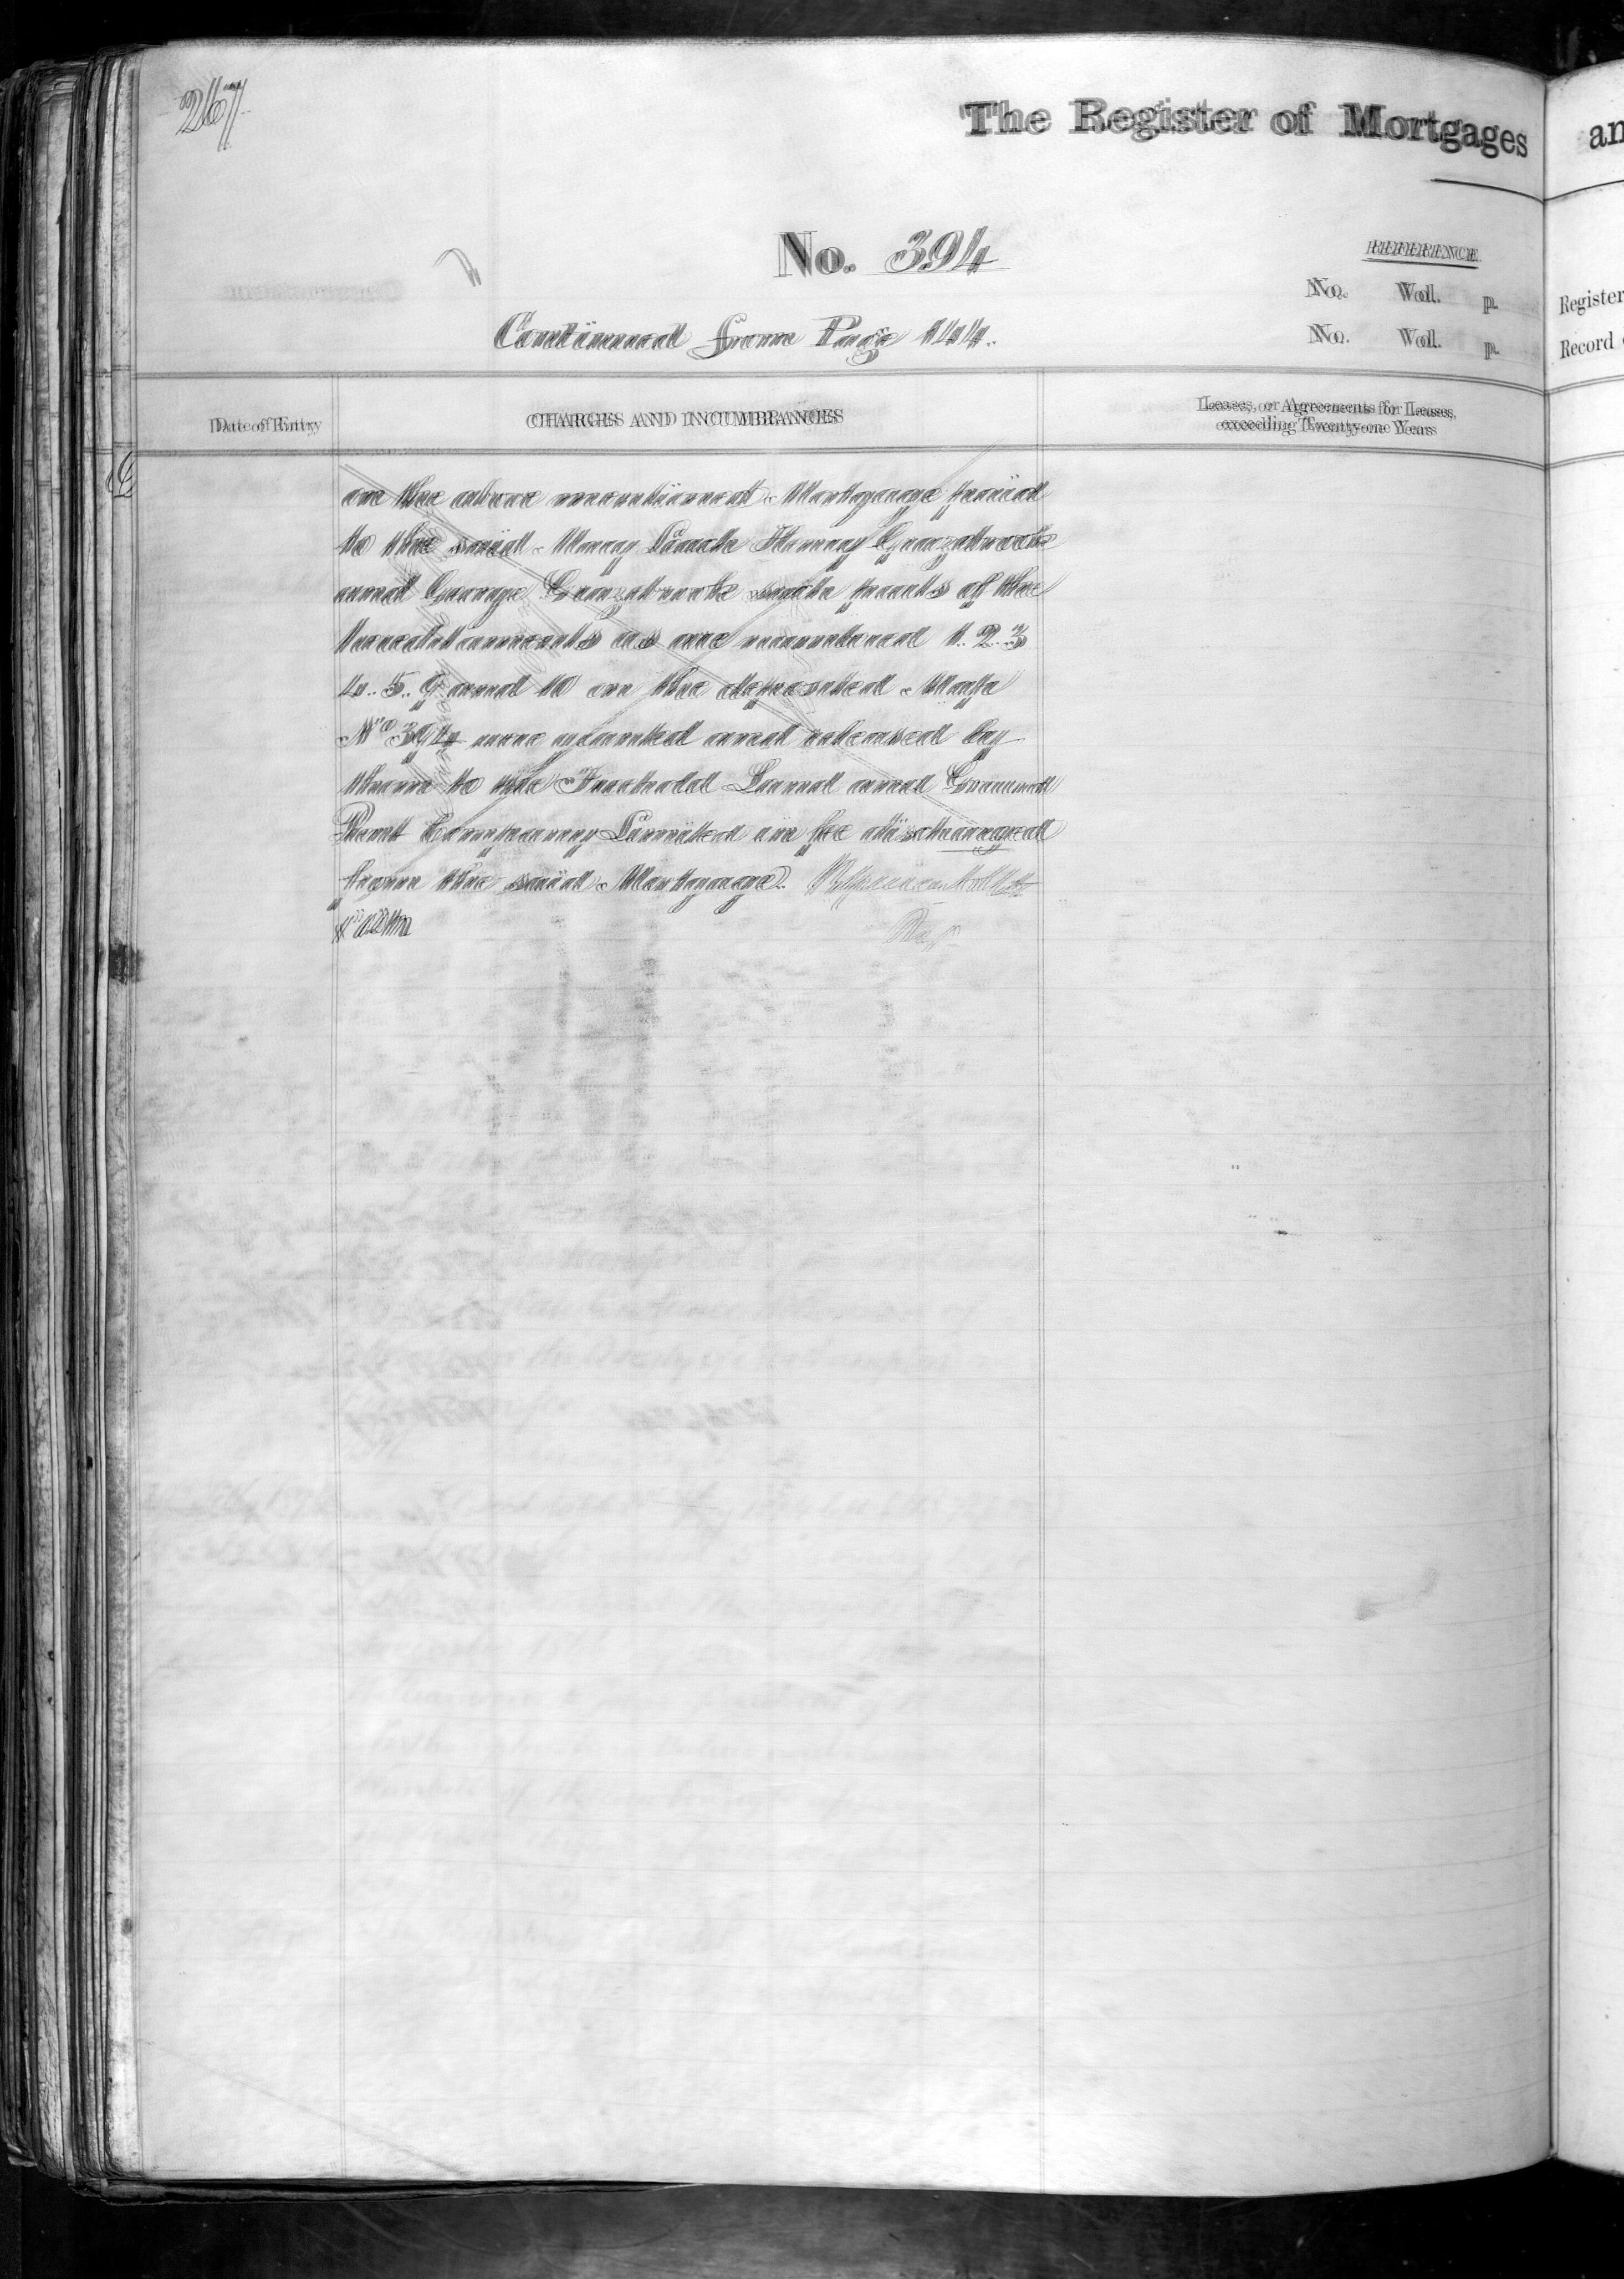 267
The Register of Mortgages
an
No. 394
REFERENCE
No. Vol. p.
Register
Continued from Page 144.
No. Vol. p.
Record
Date of Entry
CHARGES AND INCUMBRANCES
Leases, or Agreements for Leases,
exceeding Twenty-one Years
on the above mentioned Mortgage paid
to the said Mary Henry
and George such parts of the
hereditaments as are numbered 1. 2. 3
4. 5. 9 and 10 on the deposited Map
No 394 were granted and released by
them to the Freehold Land and Ground
Rent Company Limited in fee discharged
from the said Mortgage.